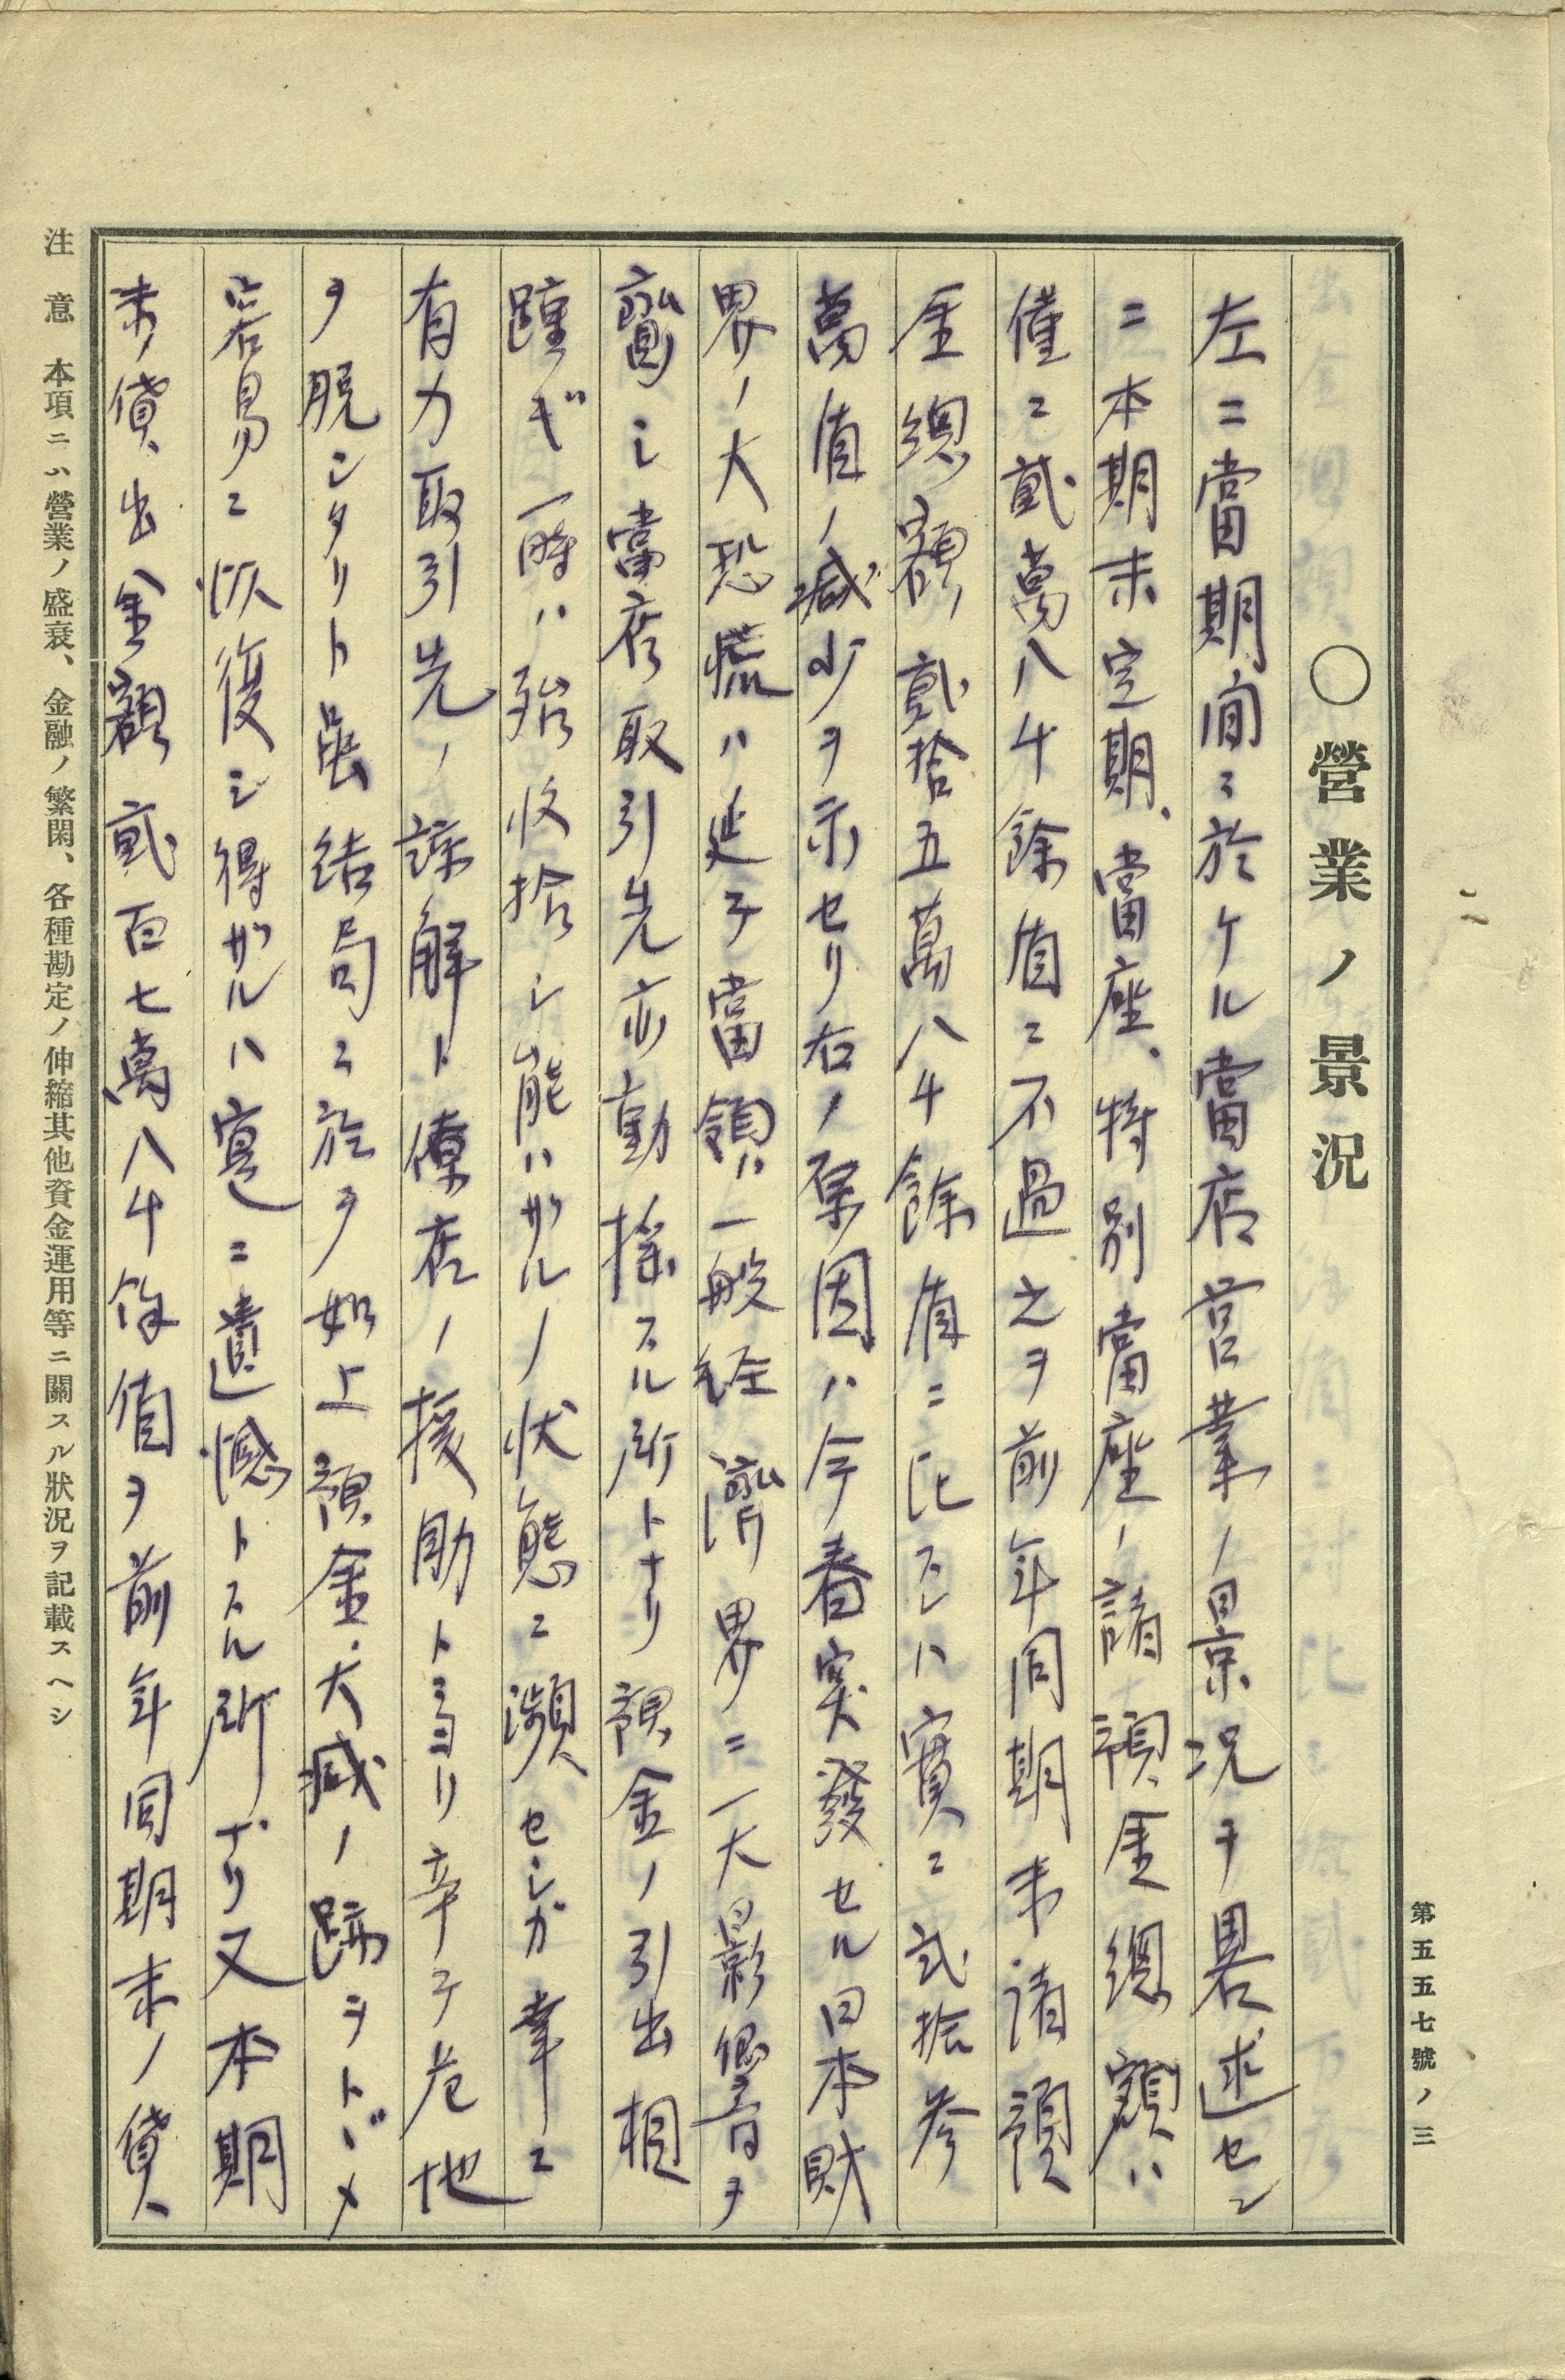 第五五七號ノ三
○營業ノ景況
左ニ當期間ニ於ケル當店営業ノ景况ヲ畧述セン
ニ本期末定期、當座、特別當座ノ諸預金總額ハ
僅ニ貳萬八千餘値ニ不過之ヲ前年同期末諸預
金總額貳拾五萬八千餘値ニ比スレハ實ニ弍拾參
萬値ノ减少ヲ示セリ右ノ原因ハ今春突發セル日本財
界ノ大恐慌ハ延テ當領ハ一般経濟界ニ一大影響ヲ
齎シ當店取引先亦動揺スル所トナリ預金ノ引出相
踵ギ一時ハ殆収拾シ能ハザルノ状態ニ瀕セシガ幸ニ
有力取引先ノ諒解ト僚店ノ援助トヨリ辛テ危地
ヲ脱シタリト虽結局ニ於テ如上預金大减ノ跡ヲトドメ
容易ニ恢復シ得ザルハ寔ニ遺憾トスル所ナリ又本期
末貸出金額貳百七萬八千余値ヲ前年同期末ノ貸
注意 本項ニハ營業ノ盛衰、金融ノ繁閑、各種勘定ノ伸縮其他資金運用等ニ關スル狀況ヲ記載スヘシ